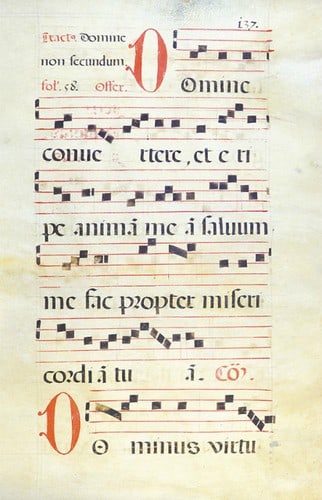 137.
Tractꝰ. Domine
non secundum
fol. 58. Offer.
DOmine
conue rtere, et e ri
pe animā meā saluum
me fac propter miseri
cordiā tu ā. Cō̄.
DO minus virtu